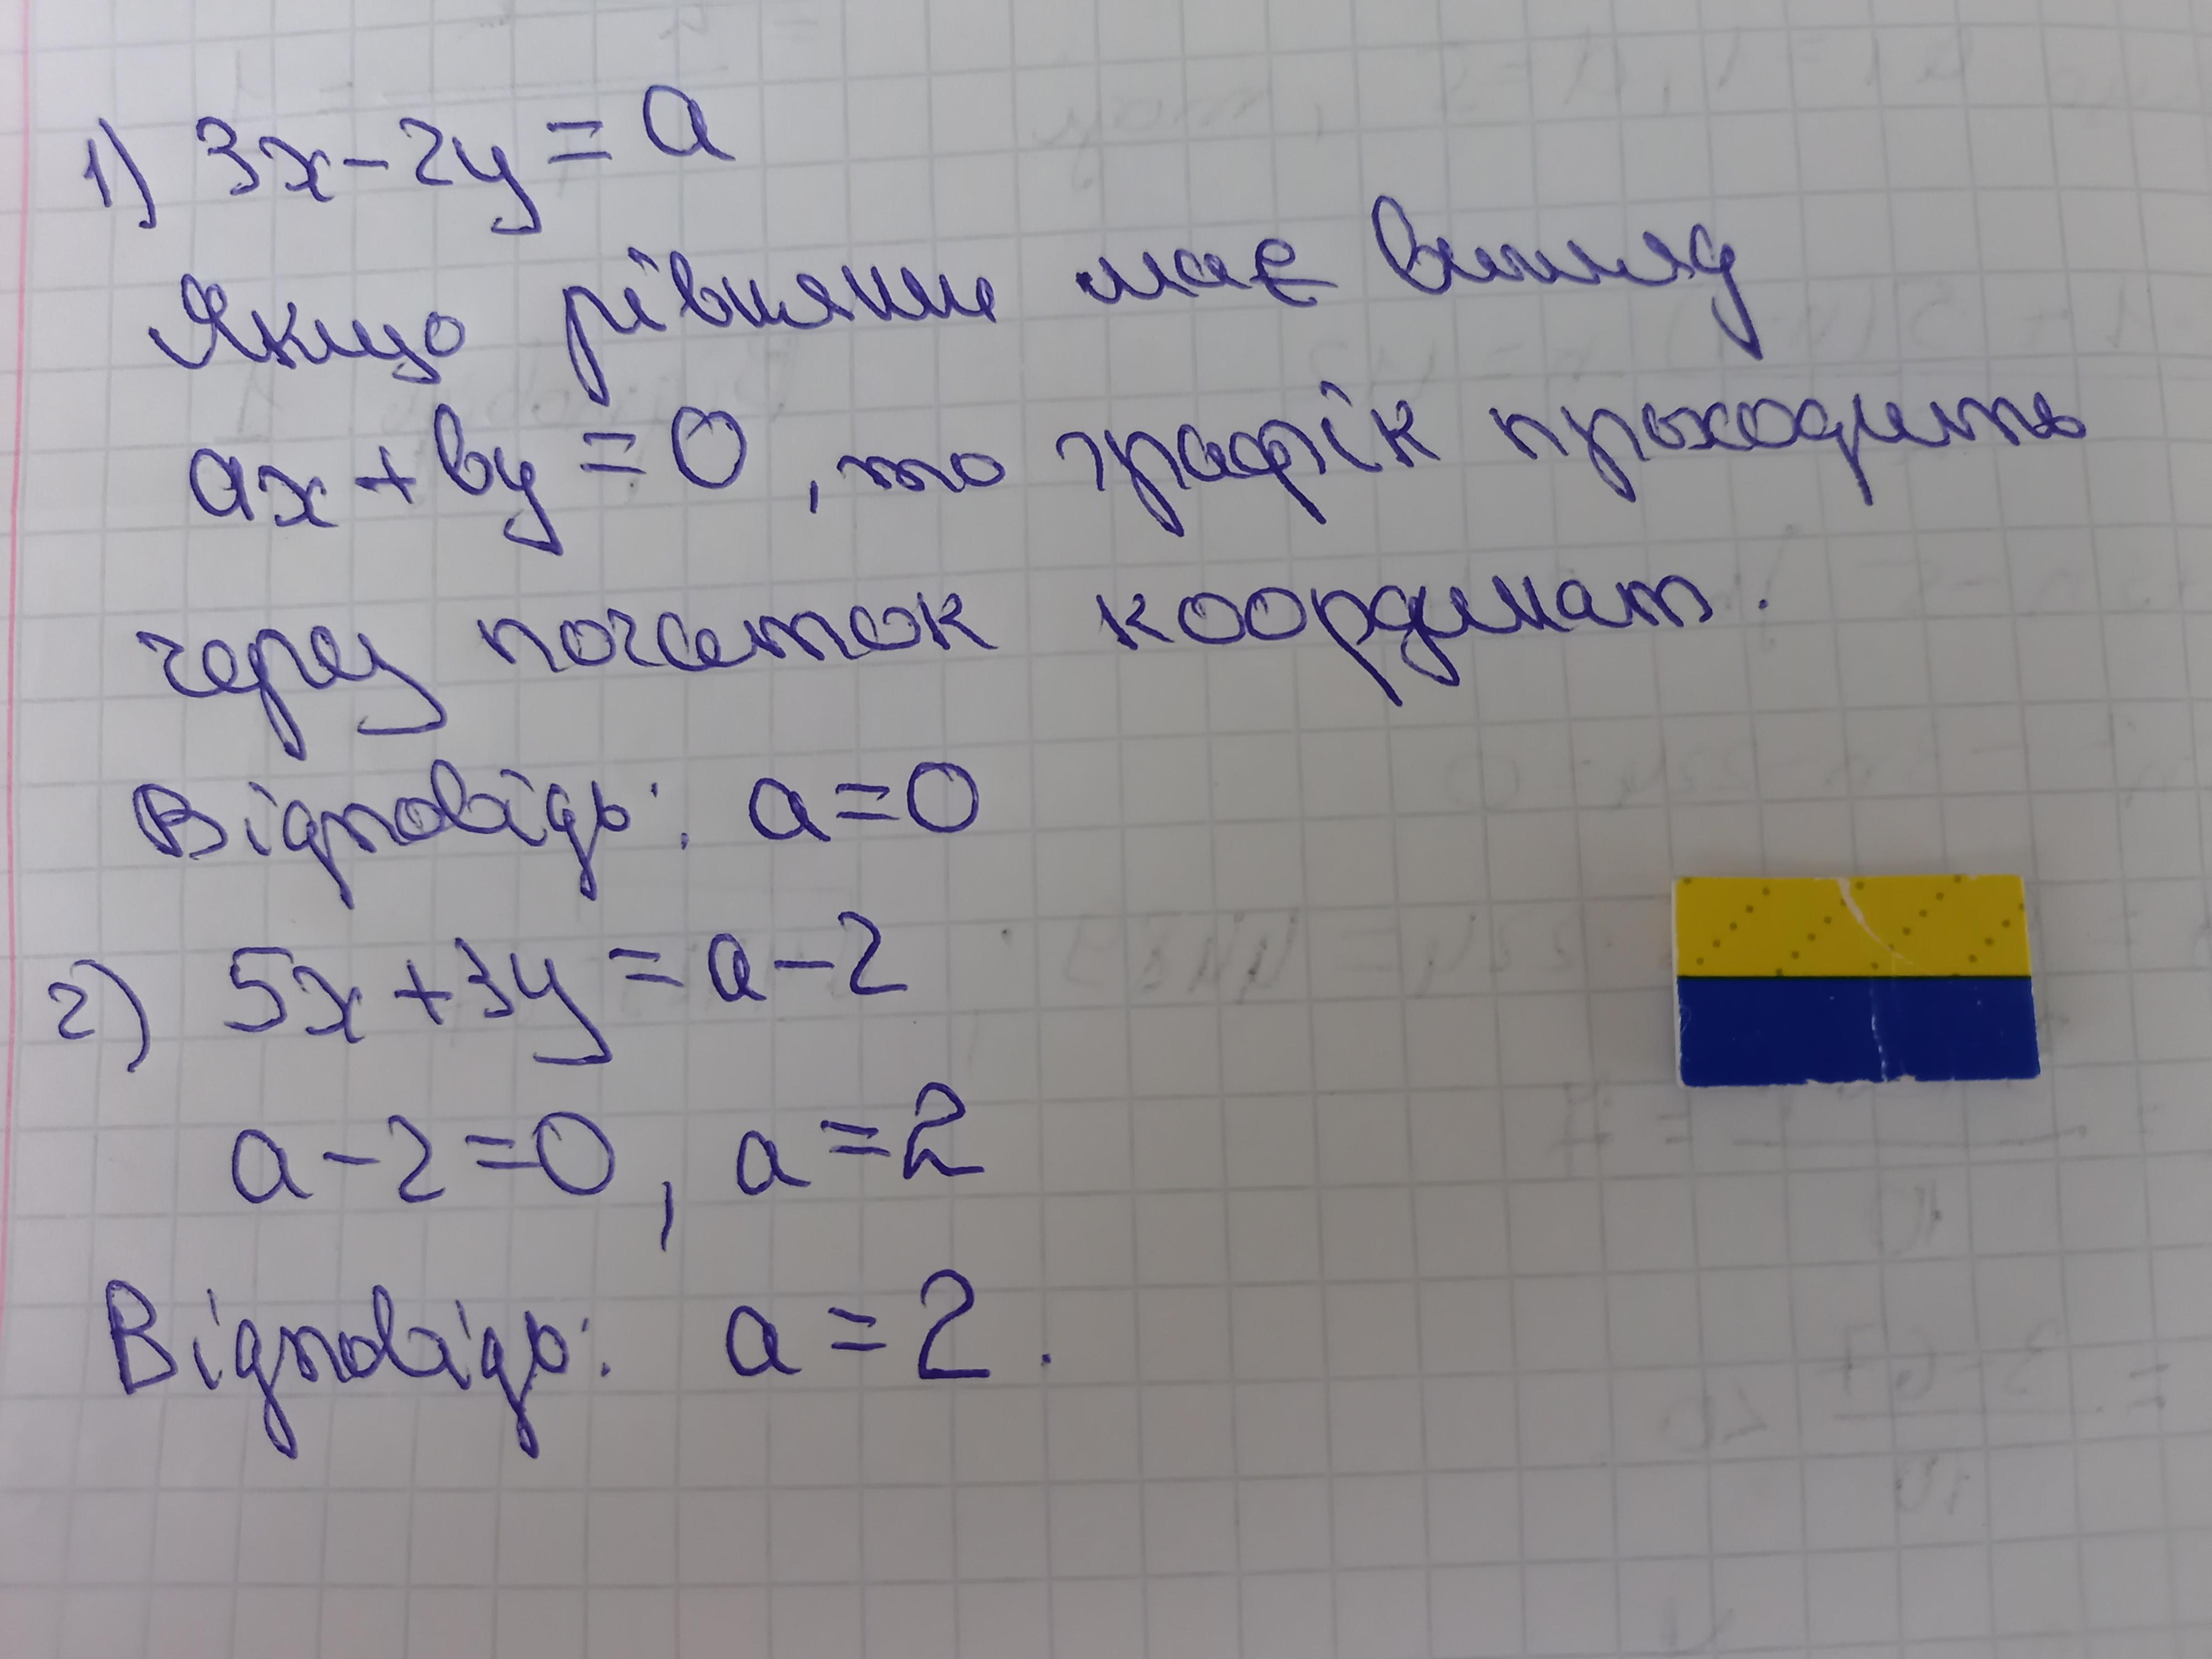 1) 3x - 2y = a
Якщо рівняння має вигляд
ax + by = 0, то графік проходить
через початок координат.
Відповідь: a = 0
2) 5x + 3y = a - 2
a - 2 = 0, a = 2
Відповідь: a = 2.